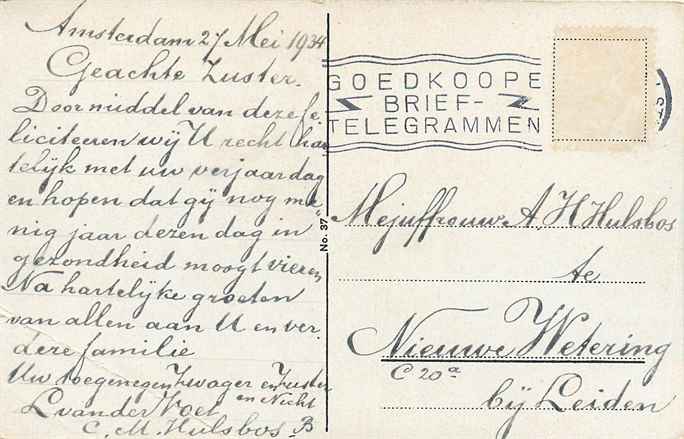 Amsterdam 27 Mei 1934
Geachte Zuster.
Door middel van deze fe-
liciteeren wij U recht har
telijk met uw verjaardag
en hopen dat gij nog me
nig jaar dezen dag in
gezondheid moogt vieren
Na hartelijke groeten
van allen aan U en ver.
dere familie
Uw toegenegen Zwager en Zuster
en Nicht
L van der Voet
C. M. Hulsbos B
No. 37
GOEDKOOPE
BRIEF-
TELEGRAMMEN
Mejuffrouw A. H Hulsbos
te
Nieuwe Wetering
C 20a
bij Leiden